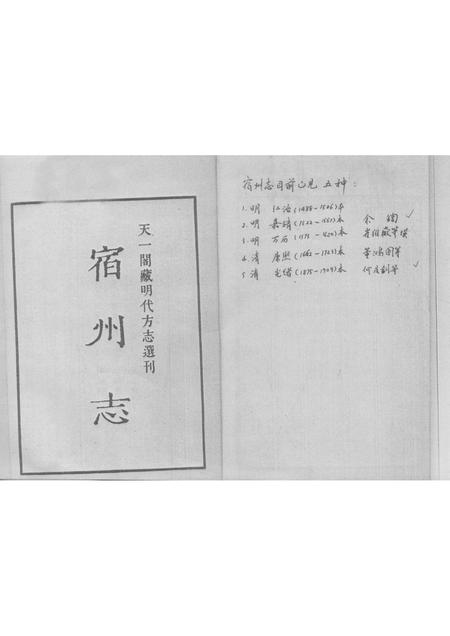 天一閣藏明代方志選刊
宿州志
宿州志目前已见五种：
1. 明 弘治(1488-1506)本
2. 明 嘉靖(1522-1567)本 余鍧
3. 明 万历(1573-1620)本 崔维嶽等撰
4. 清 康熙(1662-1723)本 董鴻图等
5. 清 光绪(1875-1909)本 何庆钊等